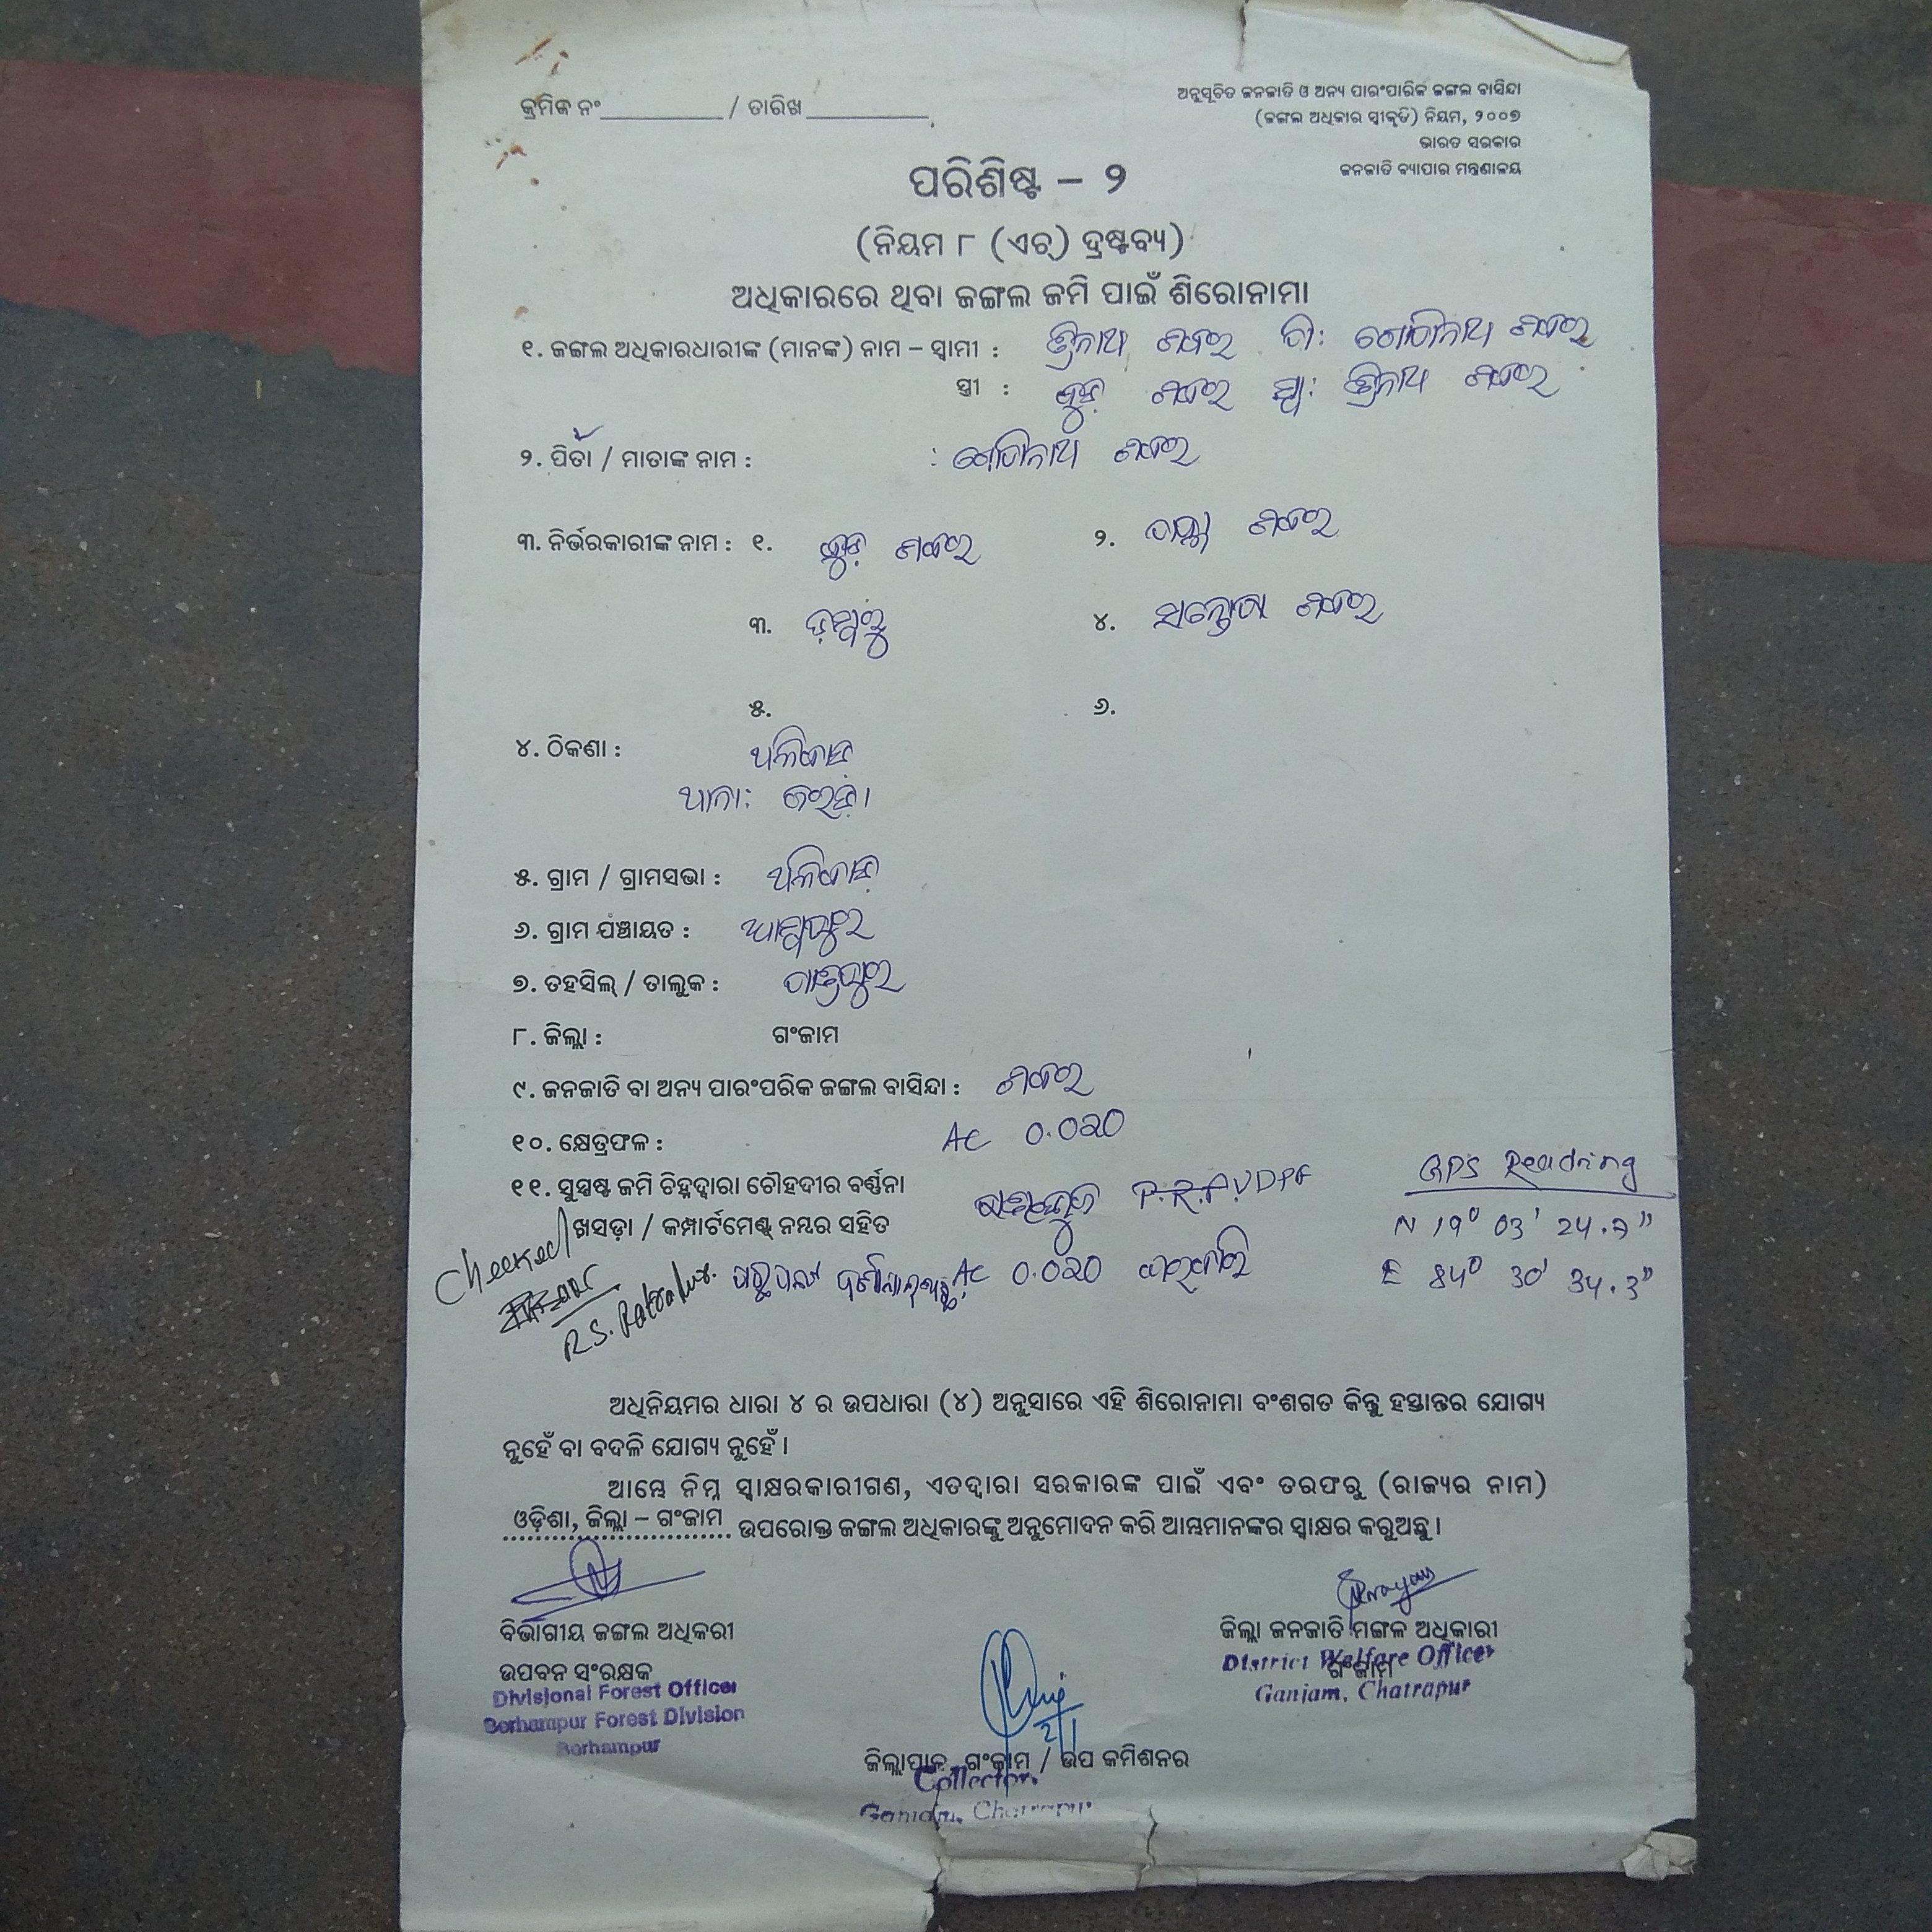 କ୍ରମିକ ନଂ__________ / ତାରିଖ__________.
ଅନୁସୂଚିତ ଜନଜାତି ଓ ଅନ୍ୟ ପାରଂପାରିକ ଜଙ୍ଗଲ ବାସିନ୍ଦା
(ଜଙ୍ଗଲ ଅଧିକାର ସ୍ୱୀକୃତି) ନିୟମ, ୨୦୦୭
ଭାରତ ସରକାର
ଜନଜାତି ବ୍ୟାପାର ମନ୍ତ୍ରଣାଳୟ
ପରିଶିଷ୍ଟ – ୨
(ନିୟମ ୮ (ଏଚ୍) ଦ୍ରଷ୍ଟବ୍ୟ)
ଅଧିକାରରେ ଥିବା ଜଙ୍ଗଲ ଜମି ପାଇଁ ଶିରୋନାମା
୧. ଜଙ୍ଗଲ ଅଧିକାରଧାରୀଙ୍କ (ମାନଙ୍କ) ନାମ – ସ୍ୱାମୀ : ତ୍ରିନାଥ ଶବର ପି: ଗୋପିନାଥ ଶବର
ସ୍ତ୍ରୀ : ଶବର ସ୍ୱା: ତ୍ରିନାଥ ଶବର
୨. ପିତା / ମାତାଙ୍କ ନାମ : : ଗୋପିନାଥ ଶବର
୩. ନିର୍ଭରକାରୀଙ୍କ ନାମ : ୧. ଶବର ୨. ଶବର
୩. ଡମ୍ବରୁ ୪. ଶବର
୫. ୬.
୪. ଠିକଣା :
ଥାନା: ଜରଡ଼ା
୫. ଗ୍ରାମ / ଗ୍ରାମସଭା :
୬. ଗ୍ରାମ ପଞ୍ଚାୟତ : ଆମ୍ବପୁର
୭. ତହସିଲ୍ / ତାଲୁକ : ପାତ୍ରପୁର
୮. ଜିଲ୍ଲା : ଗଂଜାମ
୯. ଜନଜାତି ବା ଅନ୍ୟ ପାରଂପରିକ ଜଙ୍ଗଲ ବାସିନ୍ଦା : ଶବର
୧୦. କ୍ଷେତ୍ରଫଳ : AC 0.020
୧୧. ସୁସ୍ପଷ୍ଟ ଜମି ଚିହ୍ନଦ୍ୱାରା ଚୌହଦୀର ବର୍ଣ୍ଣନା P.R.F. VDPF
ଖସଡ଼ା / କମ୍ପାର୍ଟମେଣ୍ଟ୍ ନମ୍ବର ସହିତ
AC 0.020
GPS Reading
N 19° 03' 24.7"
E 84° 30' 34.3"
Checked
ଅଧିନିୟମର ଧାରା ୪ ର ଉପଧାରା (୪) ଅନୁସାରେ ଏହି ଶିରୋନାମା ବଂଶଗତ କିନ୍ତୁ ହସ୍ତାନ୍ତର ଯୋଗ୍ୟ
ନୁହେଁ ବା ବଦଳି ଯୋଗ୍ୟ ନୁହେଁ ।
ଆମ୍ଭେ ନିମ୍ନ ସ୍ୱାକ୍ଷରକାରୀଗଣ, ଏତଦ୍ୱାରା ସରକାରଙ୍କ ପାଇଁ ଏବଂ ତରଫରୁ (ରାଜ୍ୟର ନାମ)
ଓଡ଼ିଶା, ଜିଲ୍ଲା – ଗଂଜାମ ଉପରୋକ୍ତ ଜଙ୍ଗଲ ଅଧିକାରଙ୍କୁ ଅନୁମୋଦନ କରି ଆମ୍ଭମାନଙ୍କର ସ୍ୱାକ୍ଷର କରୁଅଛୁ ।
ବିର୍ଭାଗୀୟ ଜଙ୍ଗଲ ଅଧିକରୀ
ଉପବନ ସଂରକ୍ଷକ
Divisional Forest Officer
Berhampur Forest Division
Berhampur
ଜିଲ୍ଲା ଜନଜାତି ମଙ୍ଗଳ ଅଧିକାରୀ
ଗଂଜାମ
District Welfare Officer
Ganjam, Chatrapur
ଜିଲ୍ଲାପାଳ, ଗଂଜାମ / ଉପ କମିଶନର
Collector,
Ganjam, Chatrapur